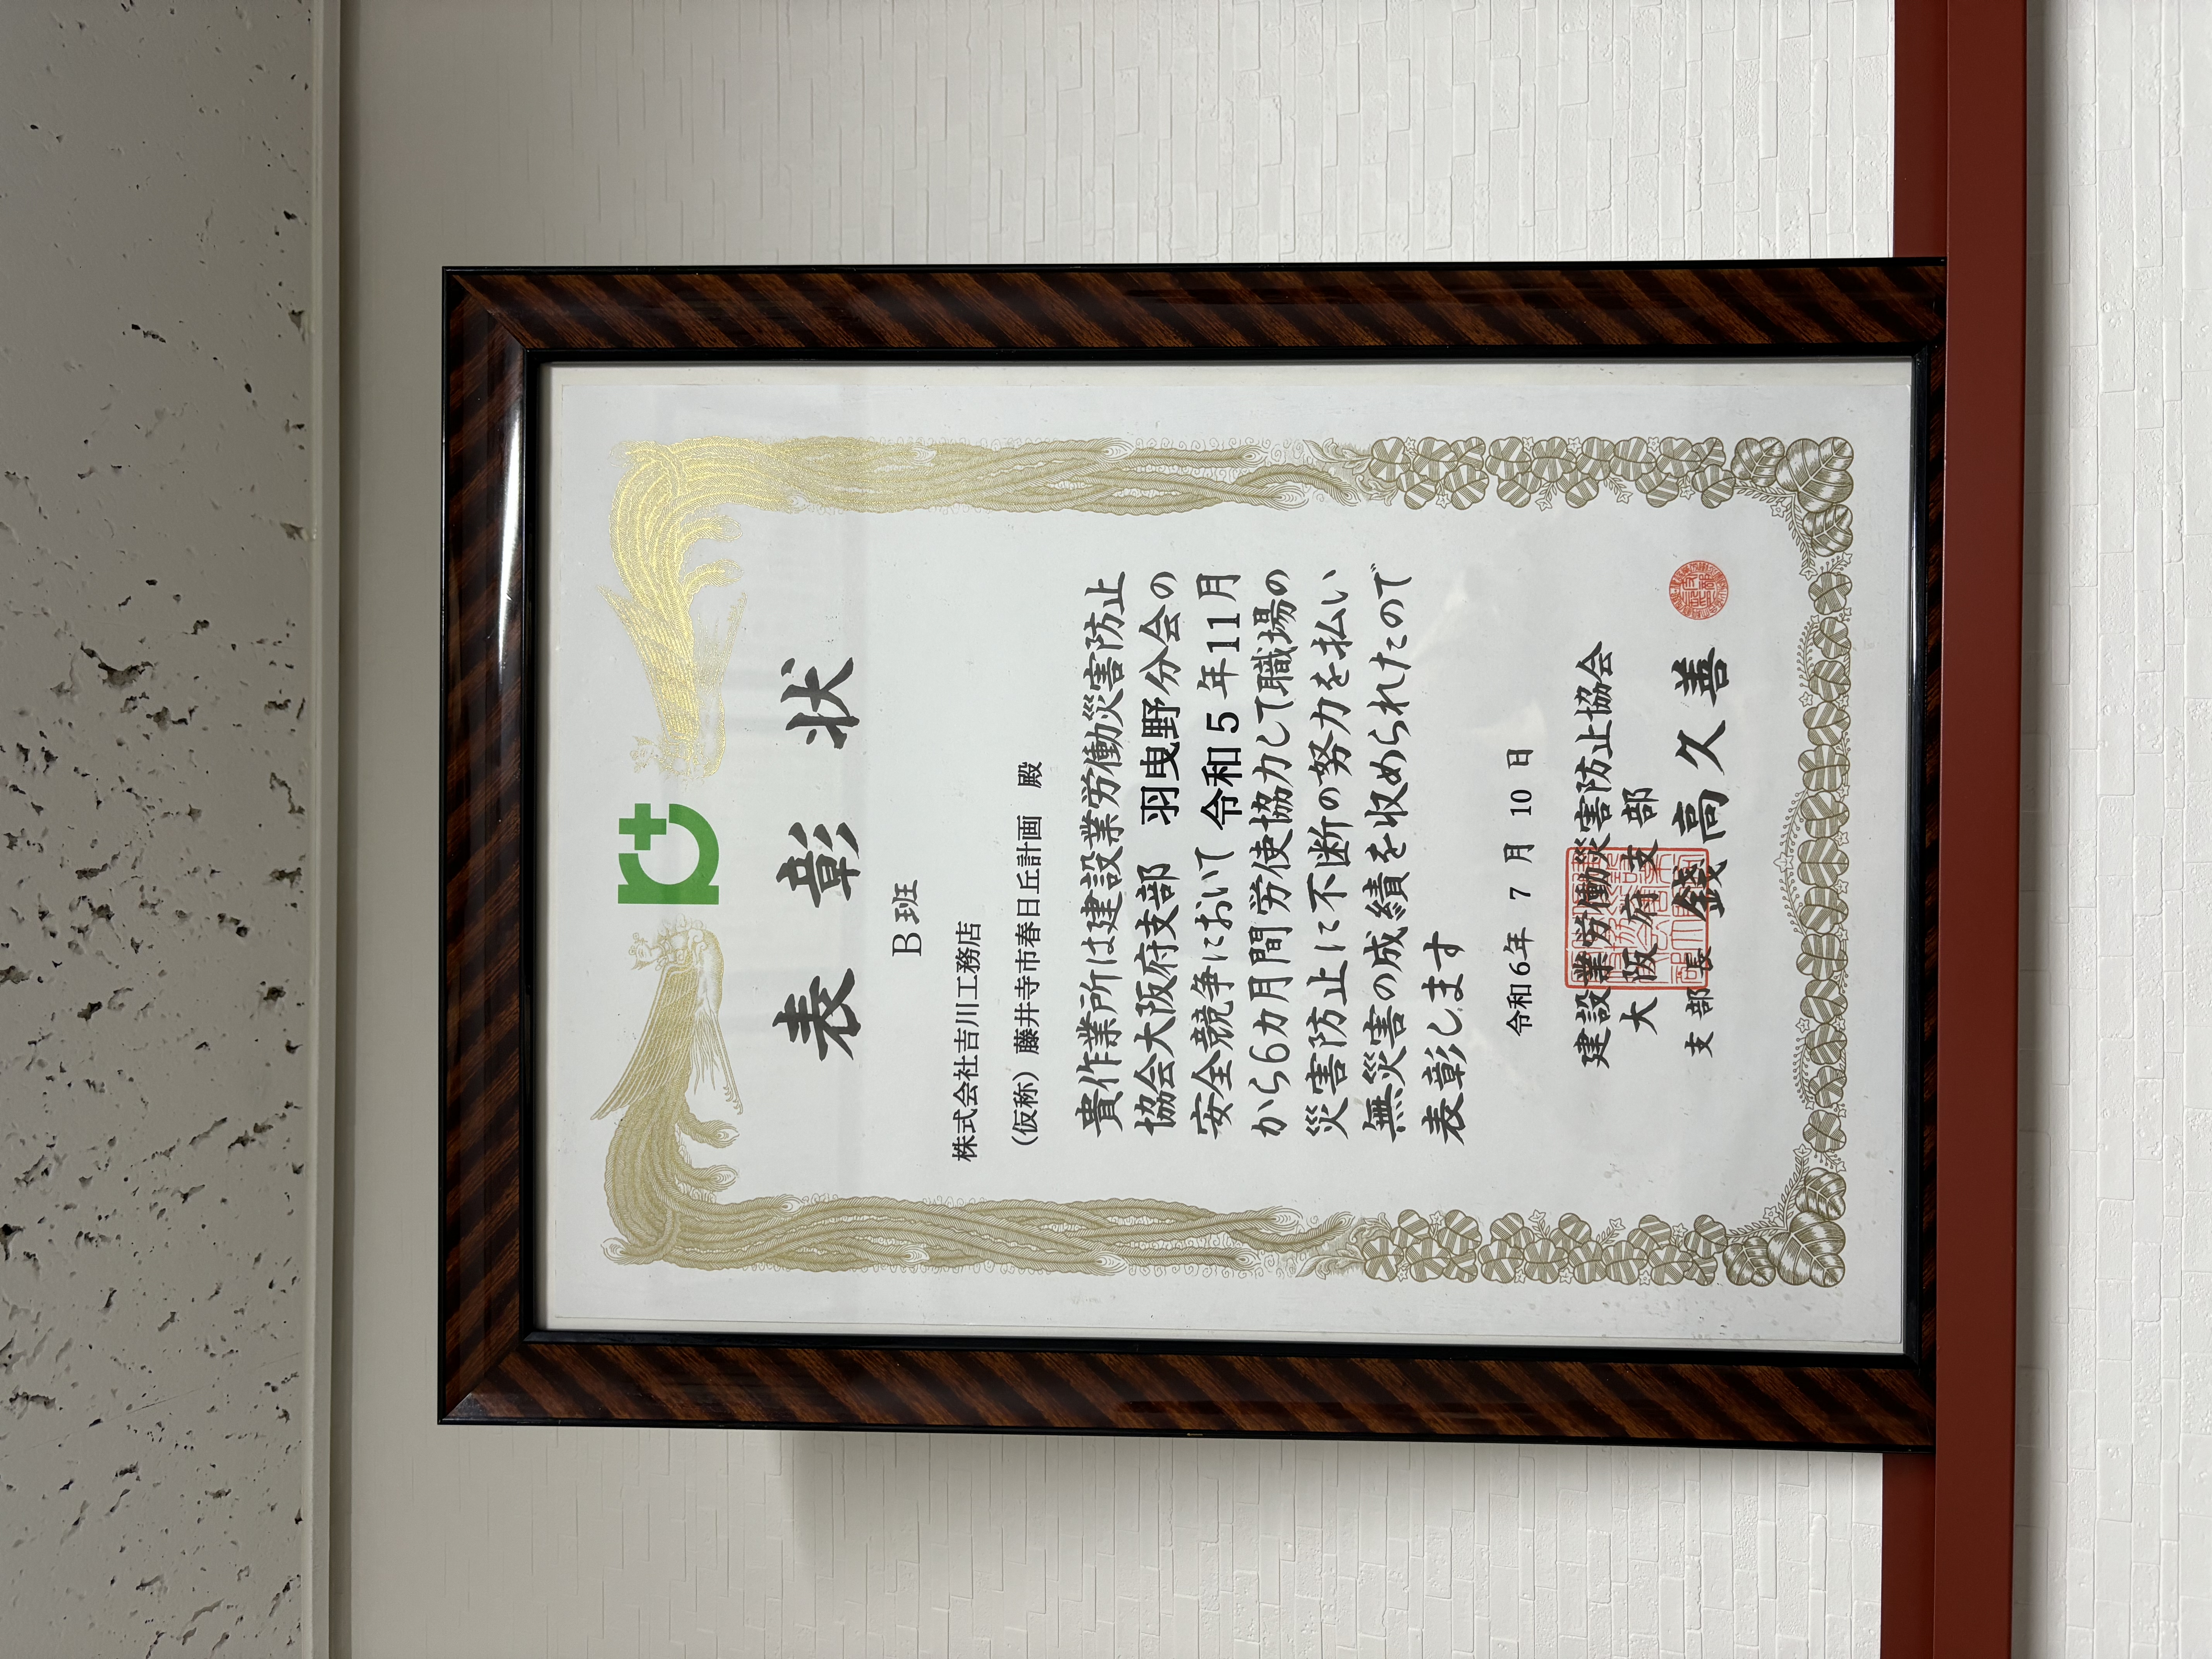 表彰状
B班
株式会社吉川工務店
（仮称）藤井寺市春日丘計画 殿
貴作業所は建設業労働災害防止
協会大阪府支部 羽曳野分会の
安全競争において 令和5年11月
から6カ月間労使協力して職場の
災害防止に不断の努力を払い
無災害の成績を収められたので
表彰します
令和6年 7 月 10 日
建設業労働災害防止協会
大阪府支部
支部長 錢高久善